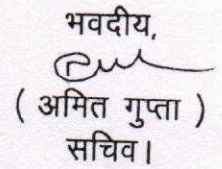 भवदीय,
( अमित गुप्ता )
सचिव।